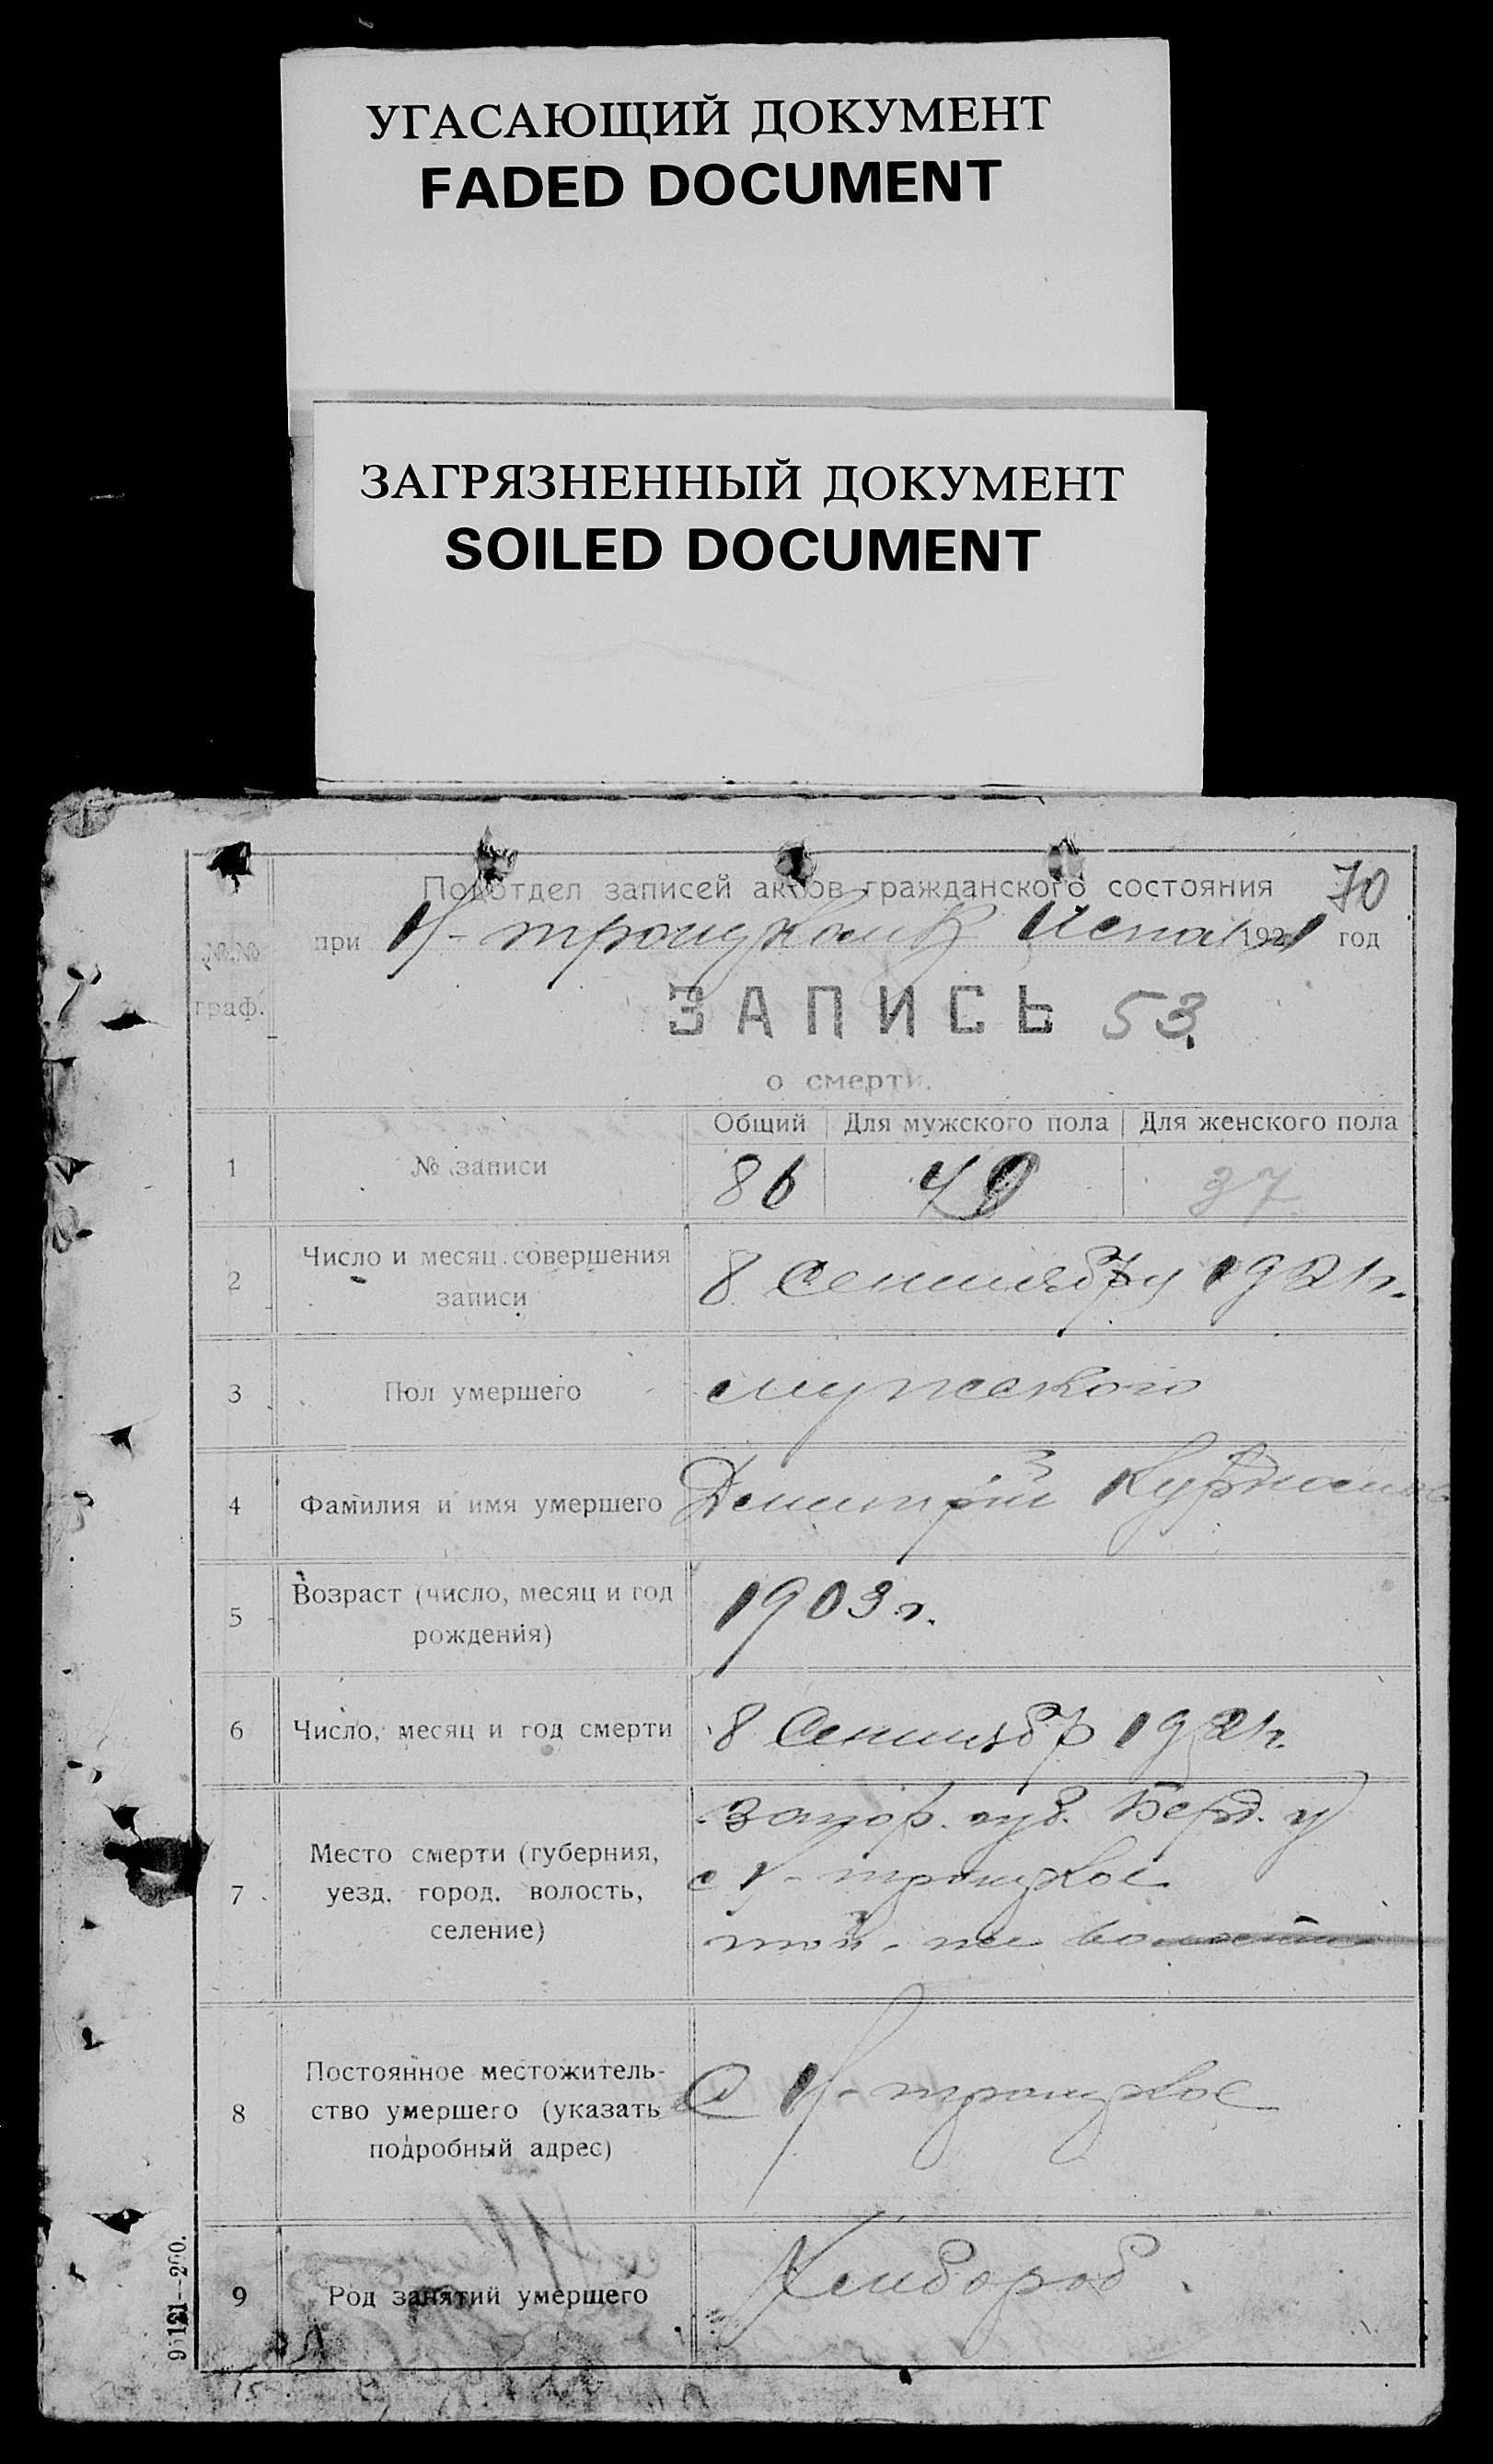 УГАСАЮЩИЙ ДОКУМЕНТ
FADED DOCUMENT
ЗАГРЯЗНЕННЫЙ ДОКУМЕНТ
SOILED DOCUMENT
Подотдел записей актов гражданского состояния 70
при Н-троицком 1921 год
№№ граф.
ЗАПИСЬ 53.
о смерти.
Общий Для мужского пола Для женского пола
1 № записи 86 49 37
2 Число и месяц совершения записи 8 Сентября 1921 г.
3 Пол умершего мужского
4 Фамилия и имя умершего Дмитрий
5 Возраст (число, месяц и год рождения) 1903 г.
6 Число, месяц и год смерти 8 Сентябр 1921 г.
7 Место смерти (губерния, уезд, город, волость, селение) Запор. губ. Берд. у
с Н-троицкое
той-же волости
8 Постоянное местожитель-
ство умершего (указать
подробный адрес) С Н-троицкое
9 Род занятий умершего Хлебороб.